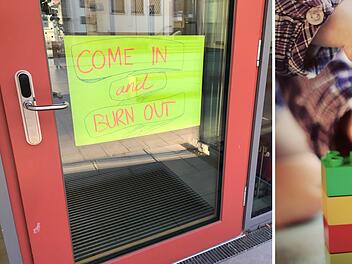 COME IN
and
BURN OUT